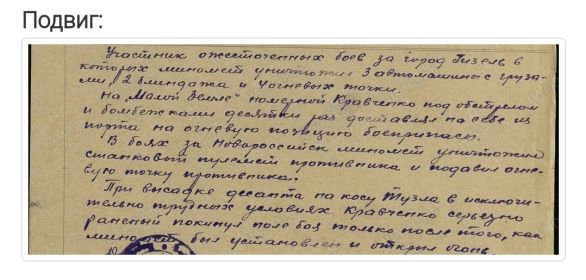 Подвиг:
Участник ожесточенных боев за город Гизель в
которых миномет уничтожил 3 автомашины с груза-
ми, 2 блиндажа и 4 огневых точки.
На "Малой Земле" номерной Кравченко под обстрелом
и бомбежками десятки раз доставлял на себе из
порта на огневую позицию боеприпасы.
В боях за Новороссийск миномет уничтожил
станковый пулемет противника и подавил огне-
вую точку противника.
При высадке десанта на косу Тузла в исключи-
тельно трудных условиях Кравченко серьезно
раненый покинул поле боя только после того, как
миномет был установлен и открыл огонь.